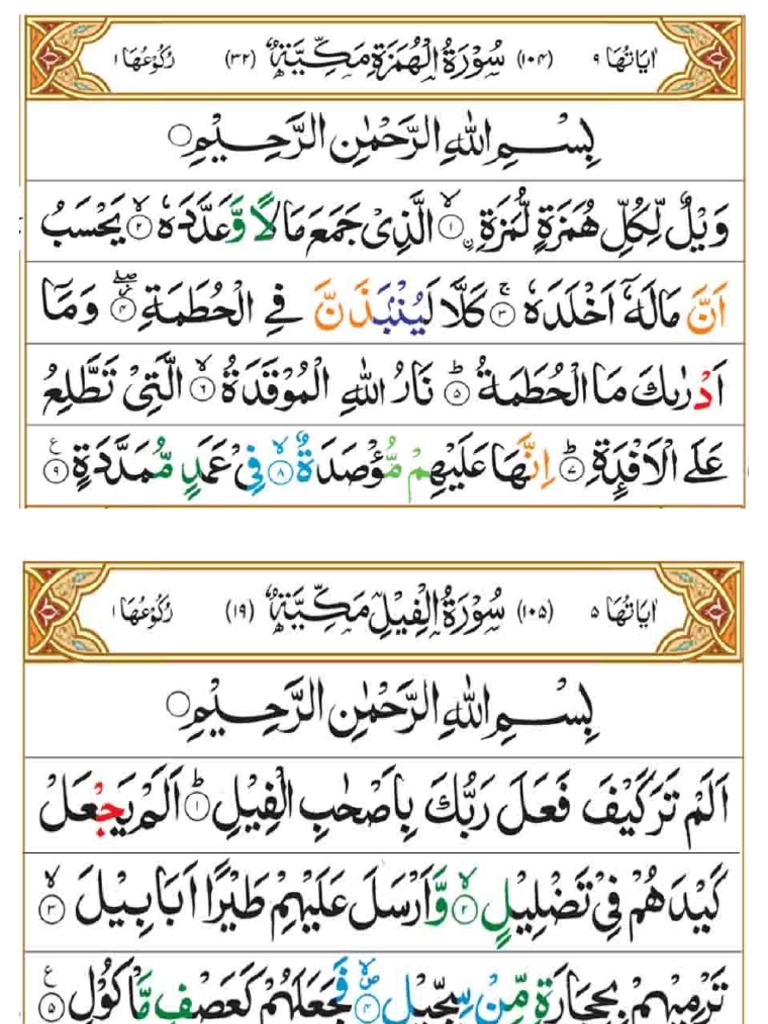 اٰیَاتُهَا ٩ (١٠٤) سُوْرَةُ الْهُمَزَةِ مَكِّيَّةٌ (٣٢) رُكُوْعُهَا ١
بِسْمِ اللّٰهِ الرَّحْمٰنِ الرَّحِيْمِ
وَيْلٌ لِّكُلِّ هُمَزَةٍ لُّمَزَةِ ۙ‏﴿١﴾ ۨ الَّذِىْ جَمَعَ مَالًا وَّعَدَّدَهٗ ۙ‏﴿٢﴾ يَحْسَبُ
اَنَّ مَالَهٗۤ اَخْلَدَهٗ ۚ‏﴿٣﴾ كَلَّا لَيُنْۢبَذَنَّ فِى الْحُطَمَةِ ۖ‏﴿٤﴾ وَمَاۤ
اَدْرٰٮكَ مَا الْحُطَمَةُ ؕ‏﴿٥﴾ نَارُ اللّٰهِ الْمُوْقَدَةُ ۙ‏﴿٦﴾ الَّتِىْ تَطَّلِعُ
عَلَى الْاَفْـِٕدَةِ ؕ‏﴿٧﴾ اِنَّهَا عَلَيْهِمْ مُّؤْصَدَةٌ ۙ‏﴿٨﴾ فِىْ عَمَدٍ مُّمَدَّدَةٍ ﴿٩﴾ ع
اٰیَاتُهَا ٥ (١٠٥) سُوْرَةُ الْفِيْلِ مَكِّيَّةٌ (١٩) رُكُوْعُهَا ١
بِسْمِ اللّٰهِ الرَّحْمٰنِ الرَّحِيْمِ
اَلَمْ تَرَ كَيْفَ فَعَلَ رَبُّكَ بِاَصْحٰبِ الْفِيْلِ ؕ‏﴿١﴾ اَلَمْ يَجْعَلْ
كَيْدَهُمْ فِىْ تَضْلِيْلٍ ۙ‏﴿٢﴾ وَّاَرْسَلَ عَلَيْهِمْ طَيْرًا اَبَابِيْلَ ۙ‏﴿٣﴾
تَرْمِيْهِمْ بِحِجَارَةٍ مِّنْ سِجِّيْلٍ ۙ‏﴿٤﴾ فَجَعَلَهُمْ كَعَصْفٍ مَّاْكُوْلٍ ﴿٥﴾ ع